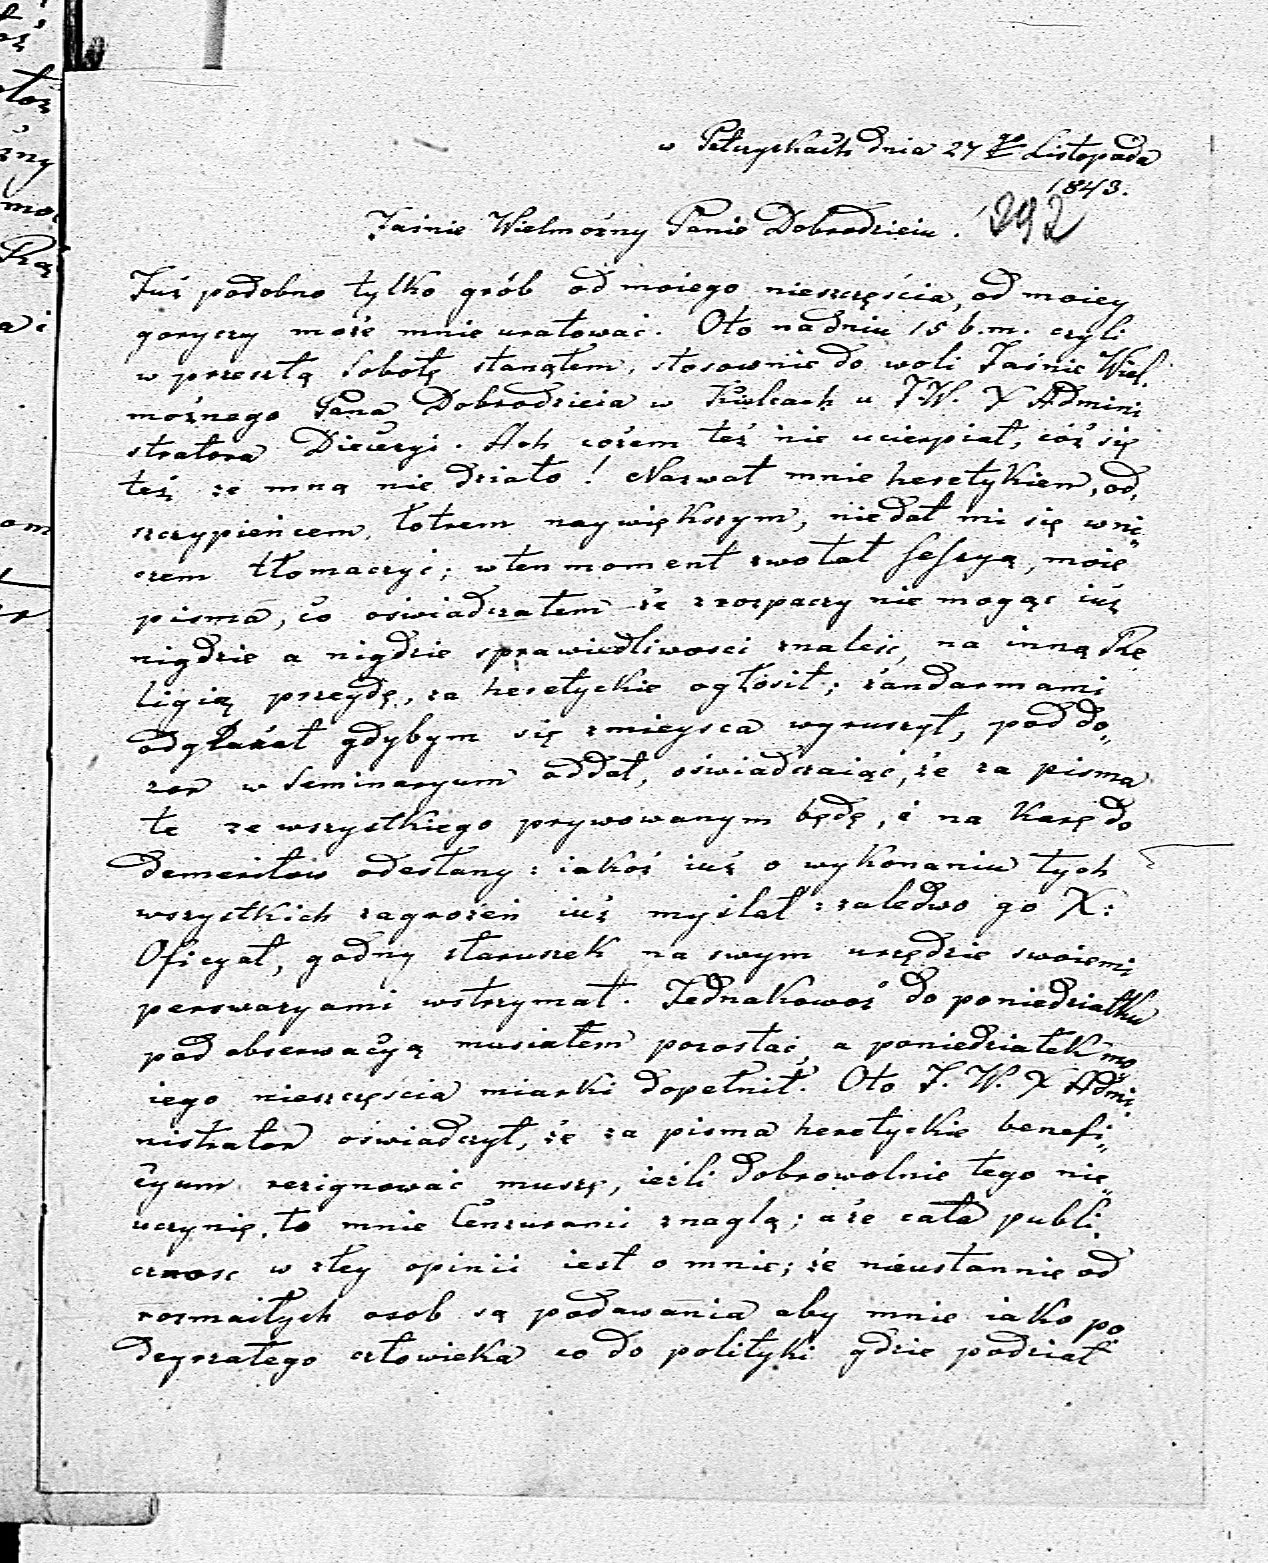 w Pełczyskach dnia 27go Listopada
1843.
292
Jaśnie Wielmożny Panie Dobrodzieiu.
Już podobno tylko grób od moiego nieszczęścia, od moiey
goryczy może mnie uratować. Oto na dniu 15 b.m. czyli
w przeszłą Sobotę stanąłem, stosownie do woli Jaśnie Wiel,
możnego Pana Dobrodzieia w Kielcach u J.W. X Admini
stratora Diecezyi. Ach cożem też nie ucierpiał, cóż się
też ze mną nie działo! Nazwał mnie heretykiem, od,
szczypieńcem, łotrem naywiększym, niedał mi się w ni„
czem tłomaczyć; w ten moment zwołał sessyą, moie
pisma, co oświadczałem że z rozpaczy nie mogąc iuż
nigdzie a nigdzie sprawiedliwosci znaleść, na inną Re
ligią przeydę, za heretyckie ogłosił; żandarmami
odgrażał gdybym się z mieysca wyruszył, pod do„
zor w Seminaryum oddał, oświadczaiąc, że za pisma
te ze wszystkiego prywowanym będę, i na karę do
demeritow odesłany: iakoż iuż o wykonaniu tych
wszystkich zagrożeń iuż myślał: zaledwo go X:
Oficyał, godny staruszek na swym urzędzie swoiemi
perswazyami wstrzymał. Jednakowoż do poniedziałku
pod obserwacyą musiałem pozostać, a poniedziałek mo
iego nieszczęscia miarki dopełnił. Oto J. W. X Admi
nistrator oświadczył, że za pisma heretyckie benefi„
cyum rezignować muszę, ieźli dobrowolnie tego nie„
uczynię, to mnie Cenzurami znaglą; a że cała publi,
cznosc w złey opinii iest o mnie; że nieustannie od
rozmaitych osob są podawania aby mnie iako po
deyrzałego człowieka co do polityki gdzie podział